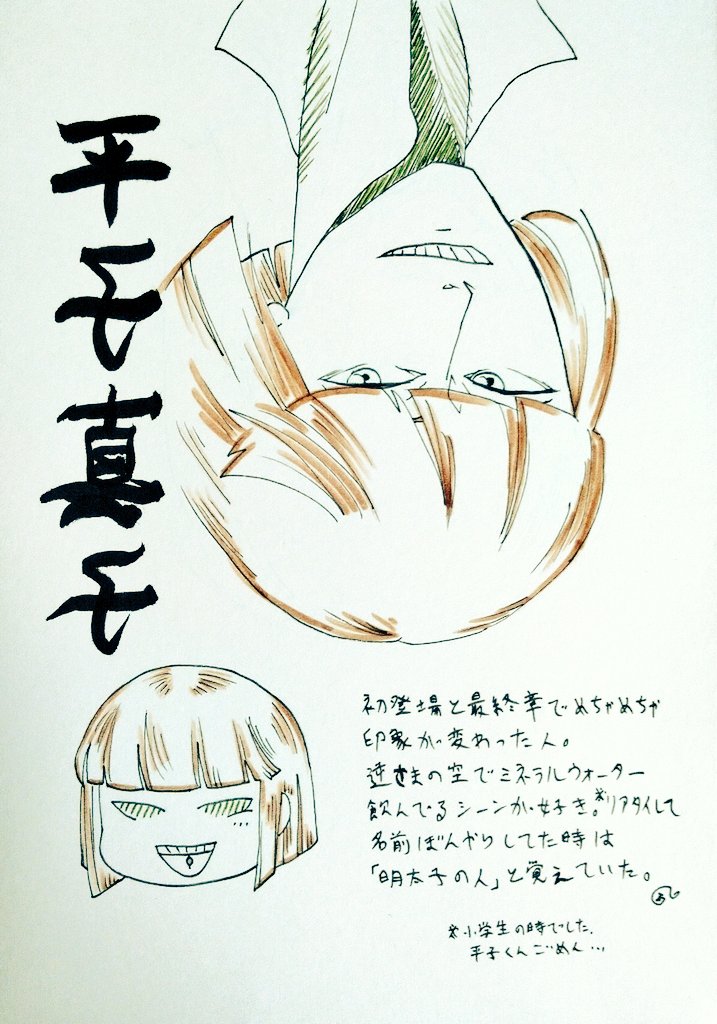 平子真子
初登場と最終章でめちゃめちゃ
印象が変わった人。
逆さまの空でミネラルウォーター
飲んでるシーンが好き。※リアタイして
名前ぼんやりしてた時は
「明太子の人」と覚えていた。
※小学生の時でした。
平子くんごめん…